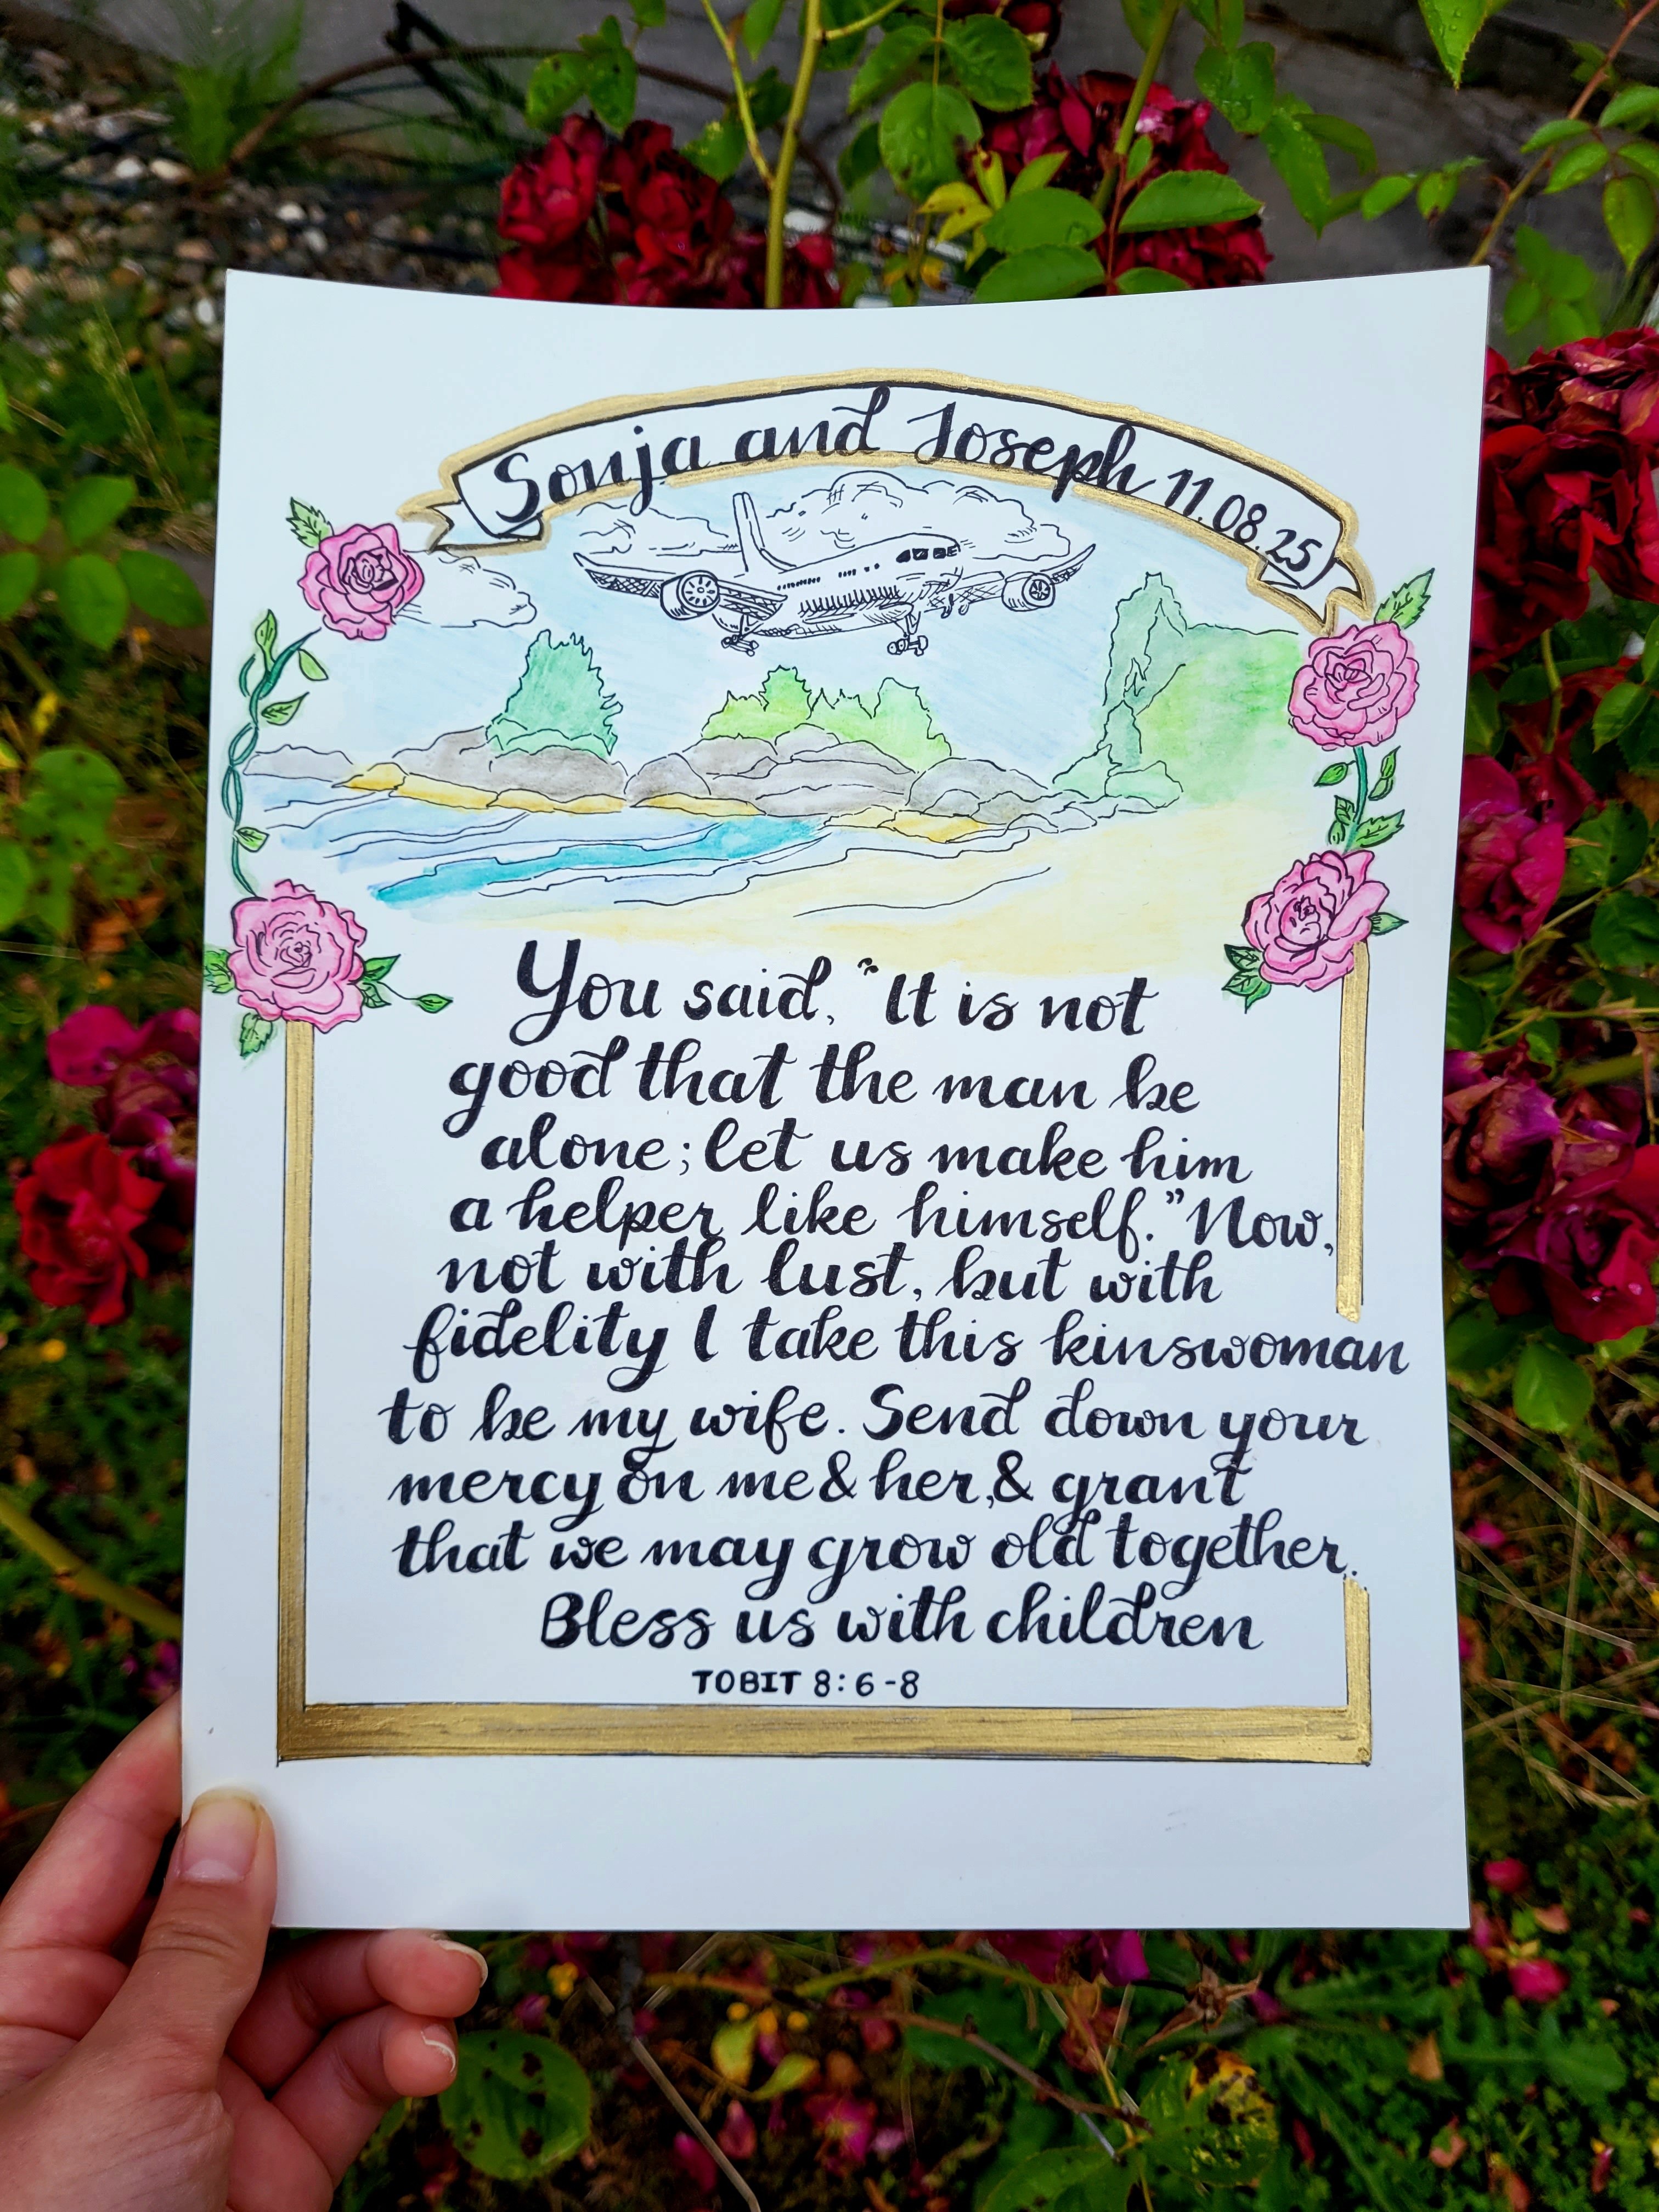 Sonja and Joseph 11.08.25
You said, "It is not
good that the man be
alone; let us make him
a helper like himself." Now,
not with lust, but with
fidelity I take this kinswoman
to be my wife. Send down your
mercy on me & her, & grant
that we may grow old together.
Bless us with children
TOBIT 8:6-8